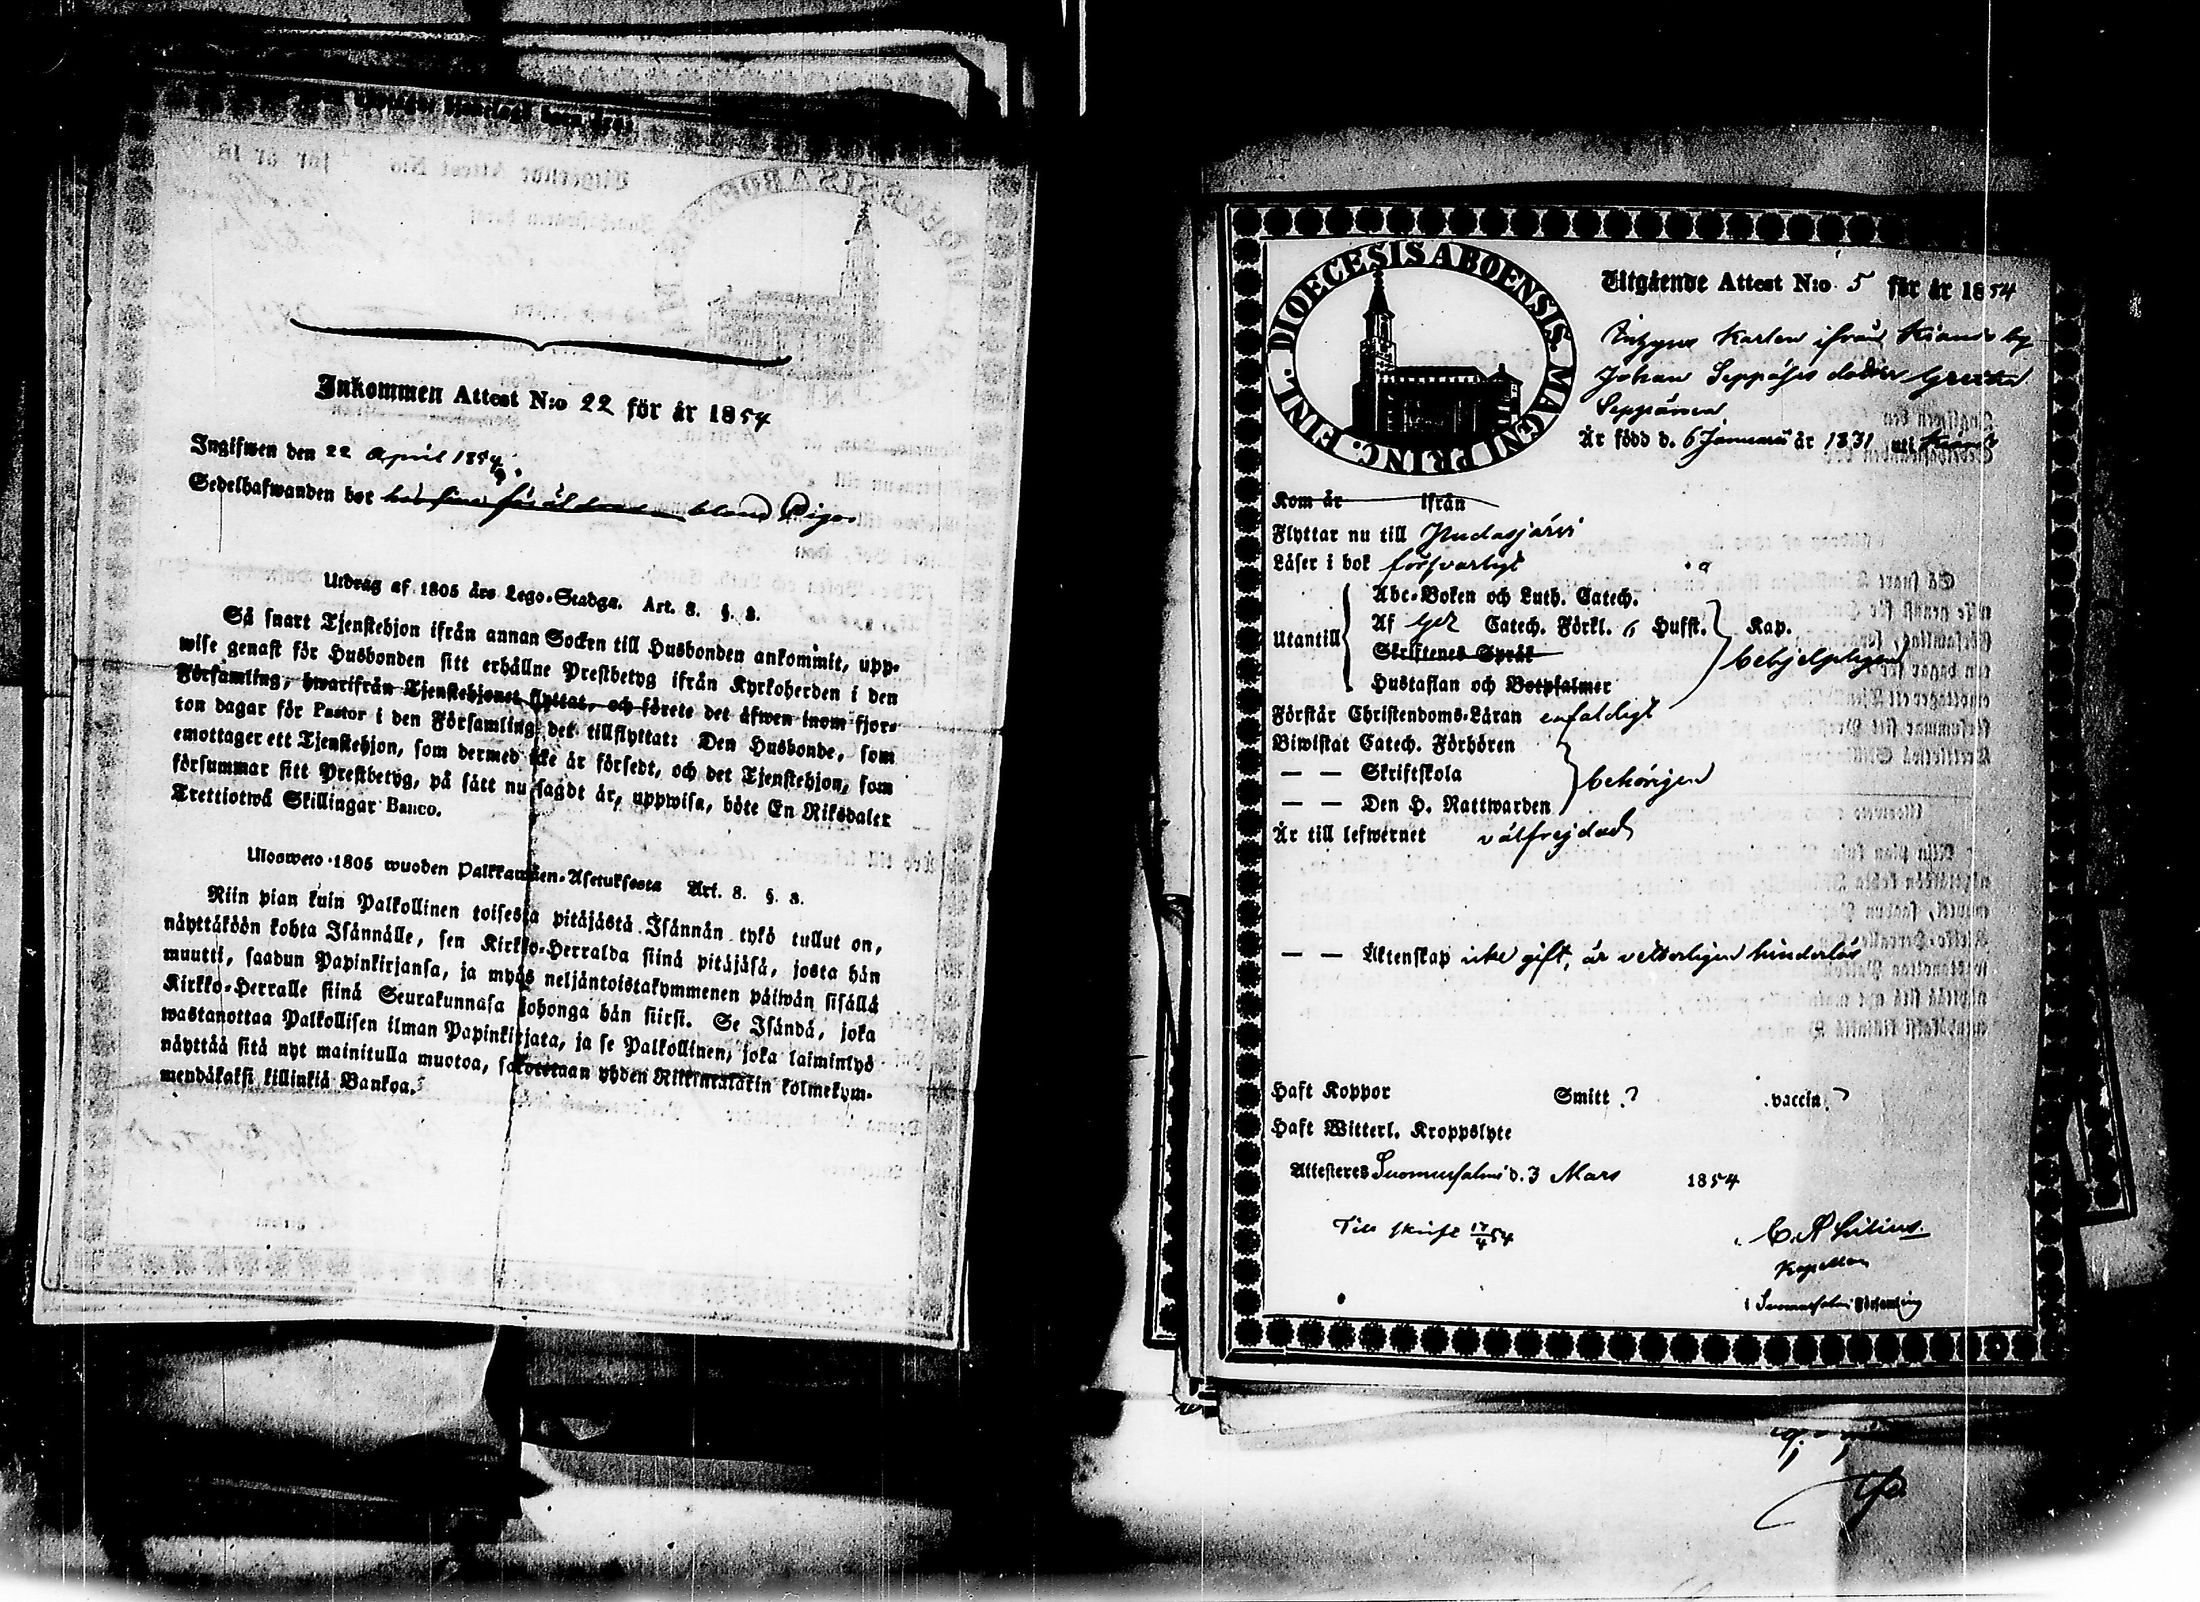 Inkommen Attest N:o 22 för år 1854
Ingifwen den 22 April 1854
Sedelhafwanden bor hos sina föräldrar bland Pigor
Utdrag af 1805 års Lego-Stadga. Art. 8. §. 3.
Så snart Tjenstehjon ifrån annan Socken till Husbonden ankommit, upp-
wise genast för Husbonden sitt erhållne Prestbetyg ifrån Kyrkoherden i den
Församling, hwarifrån Tjenstehjonet flyttat, och förete det äfwen inom fjor-
ton dagar för Pastor i den Församling, det tillflyttat: Den Husbonde, som
emottager ett Tjenstehjon, som dermed icke är försedt, och det Tjenstehjon, som
försummar sitt Prestbetyg, på sätt nu sagdt är, uppwisa, böte En Riksdaler
Trettiotwå Skillingar Banco.
Uloswето 1805 wuoden Palkkawäen-Asetuksesta Art. 8. §. 3.
Niin pian kuin Palkollinen toisesta pitäjästä Isännän tykö tullut on,
näyttäköön kohta Isännälle, sen Kirkko-Herralda siinä pitäjäsä, josta hän
muutti, saadun Papinkirjansa, ja myös neljäntoistakymmenen päiwän sisällä
Kirkko-Herralle siinä Seurakunnasa johonga hän siirsi. Se Isändä, joka
wastanottaa Palkollisen ilman Papinkirjata, ja se Palkollinen, joka laiminlyö
näyttää sitä nyt mainitulla muotoa, sakotetaan yhden Riikintalarin kolmekym-
mendäkaksi killinkiä Bankoa.
DIOECESIS ABOENSIS. MAGNI PRINC. FINL.
Utgående Attest N:o 5 för år 1854
Karlen ifrån Kianda by
Johan Seppäses dotter Greeta
Seppänen
Är född d. 6 Januarii år 1831 uti Kianda
Kom år ifrån
Flyttar nu till Pudasjärvi
Läser i bok försvarligt
Utantill
Abc-Boken och Luth. Catech.
Af Catech. Förkl. 6 Hufst. Kap.
Skriftenes Språk
begjelpligen
Hustaflan och Botpsalmer
Förstår Christendoms-Läran enfaldigt
Biwistat Catech. Förhören
— — Skriftskola behörigen
— — Den H. Nattwarden
Är till lefwernet välfrejdad
— — Äktenskap icke gift, är vetterligen hinderlös
Haft Koppor Smitt ? vaccin ?
Haft Witterl. Kroppslyte
Attesteres Suomussalmi d. 3 Mars 1854
Till skrift 17/4 54
Kapellan
i Suomussalmi Församling